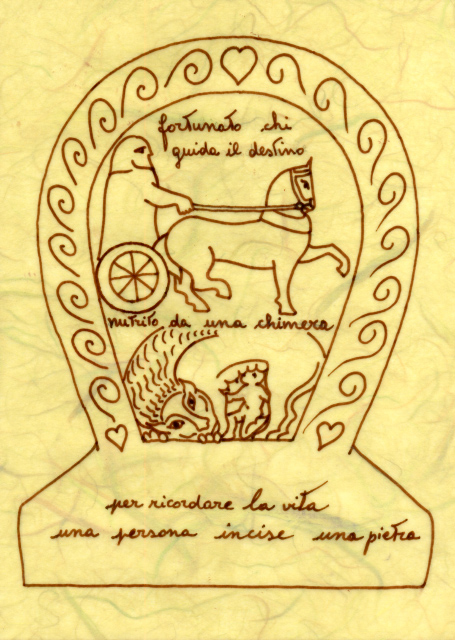 fortunato chi
guida il destino
nutrito da una chimera
per ricordare la vita
una persona incise una pietra